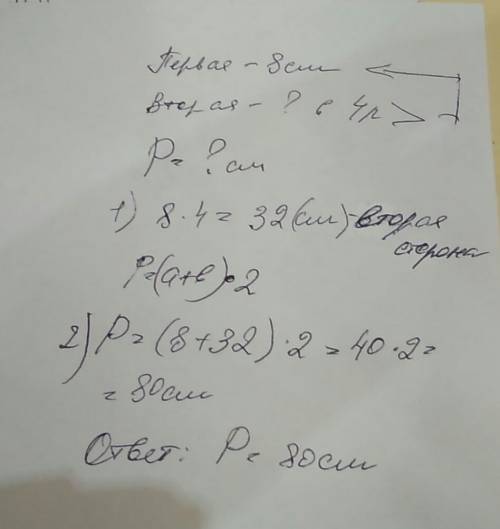 Первая - 8см
вторая - ? в 4р >
P = ? см
1) 8 · 4 = 32(см) - вторая
сторона
P=(a+в)·2
2) P = (8+32) · 2 = 40 · 2 =
= 80см
Ответ: P = 80см